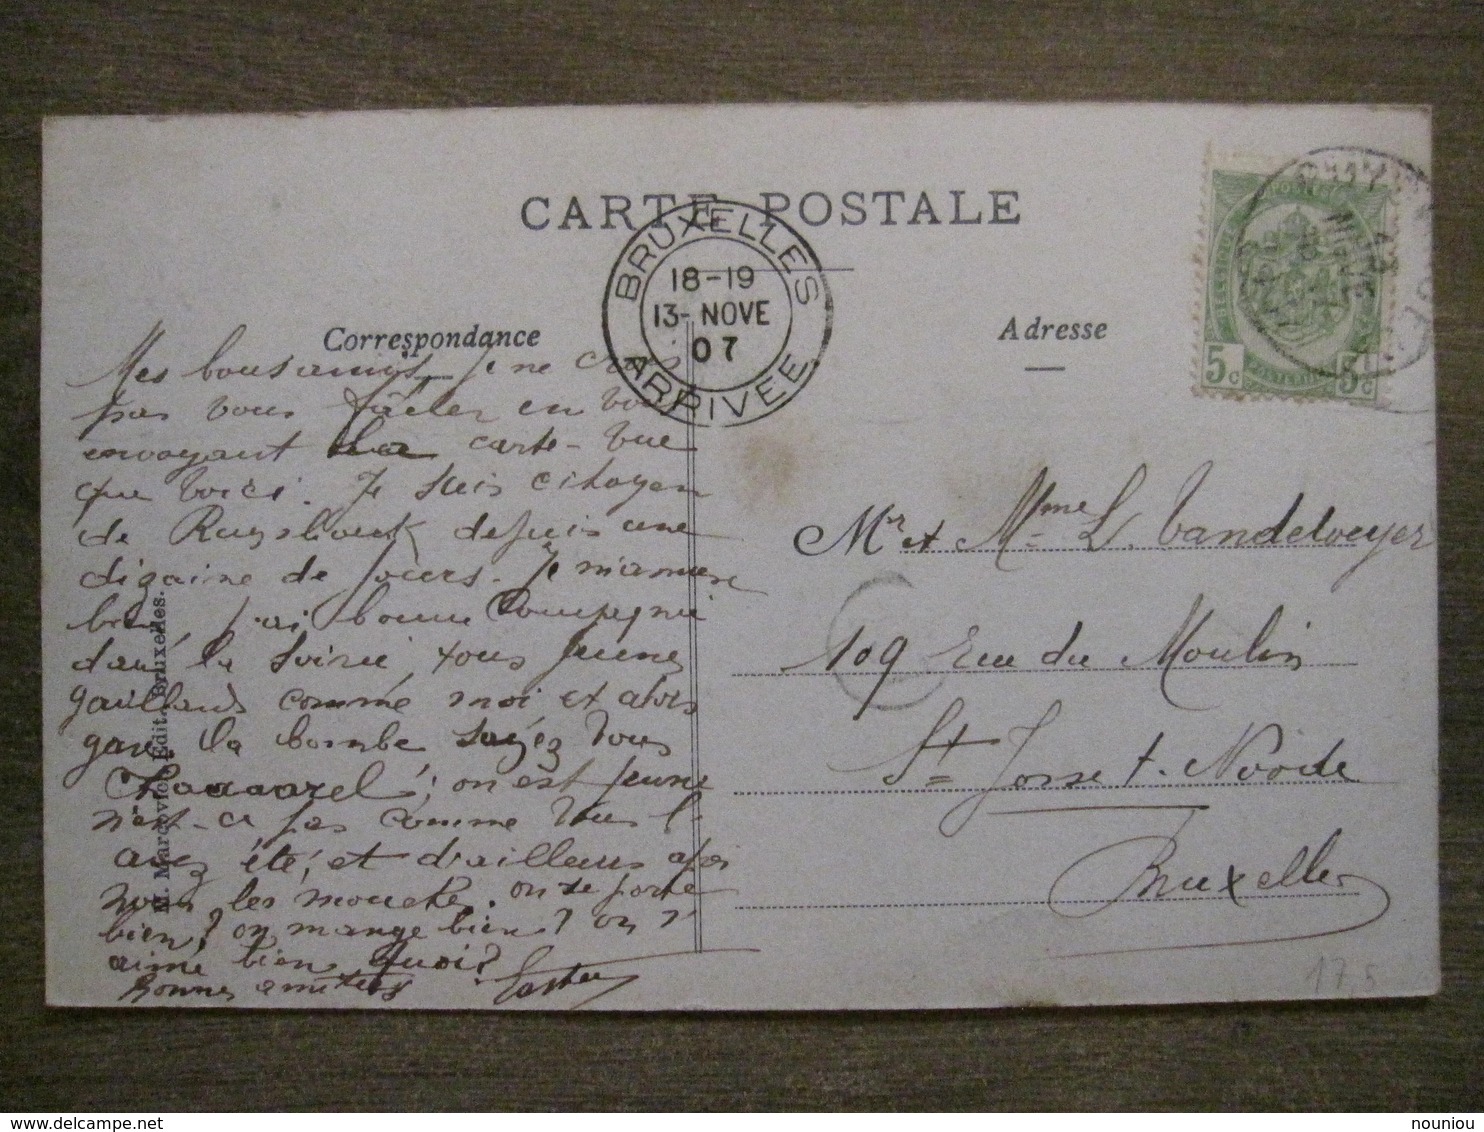 CARTE POSTALE
BRUXELLES
18-19
13-NOVE
07
ARRIVEE
Correspondance
Adresse
5c 5c
Mes bons amis, je ne crois
pas vous fâcher en vous
envoyant la carte-vue
que voici. Je suis citoyen
de Ruysbouck depuis une
dizaine de jours. Je m'amuse
bien, j'ai bonne Compagnie
dans la soirée, tous jeunes
gaillards comme moi et alors
gare la bombe. Soyez vous
Kaaaarel, on est jeune
n'est-ce pas comme vous l'
avez été, et d'ailleurs
nous les mouche. on se porte
bien? on mange bien? on s'
aime bien quoi?
Bonnes amitiés
Mr et Mme L. Vandeweyer
109 Rue du Moulin
St Josse t. Noode
Bruxelles
M. Marcovici, Edit. Bruxelles.
17,5
delcampe.net
nouniou